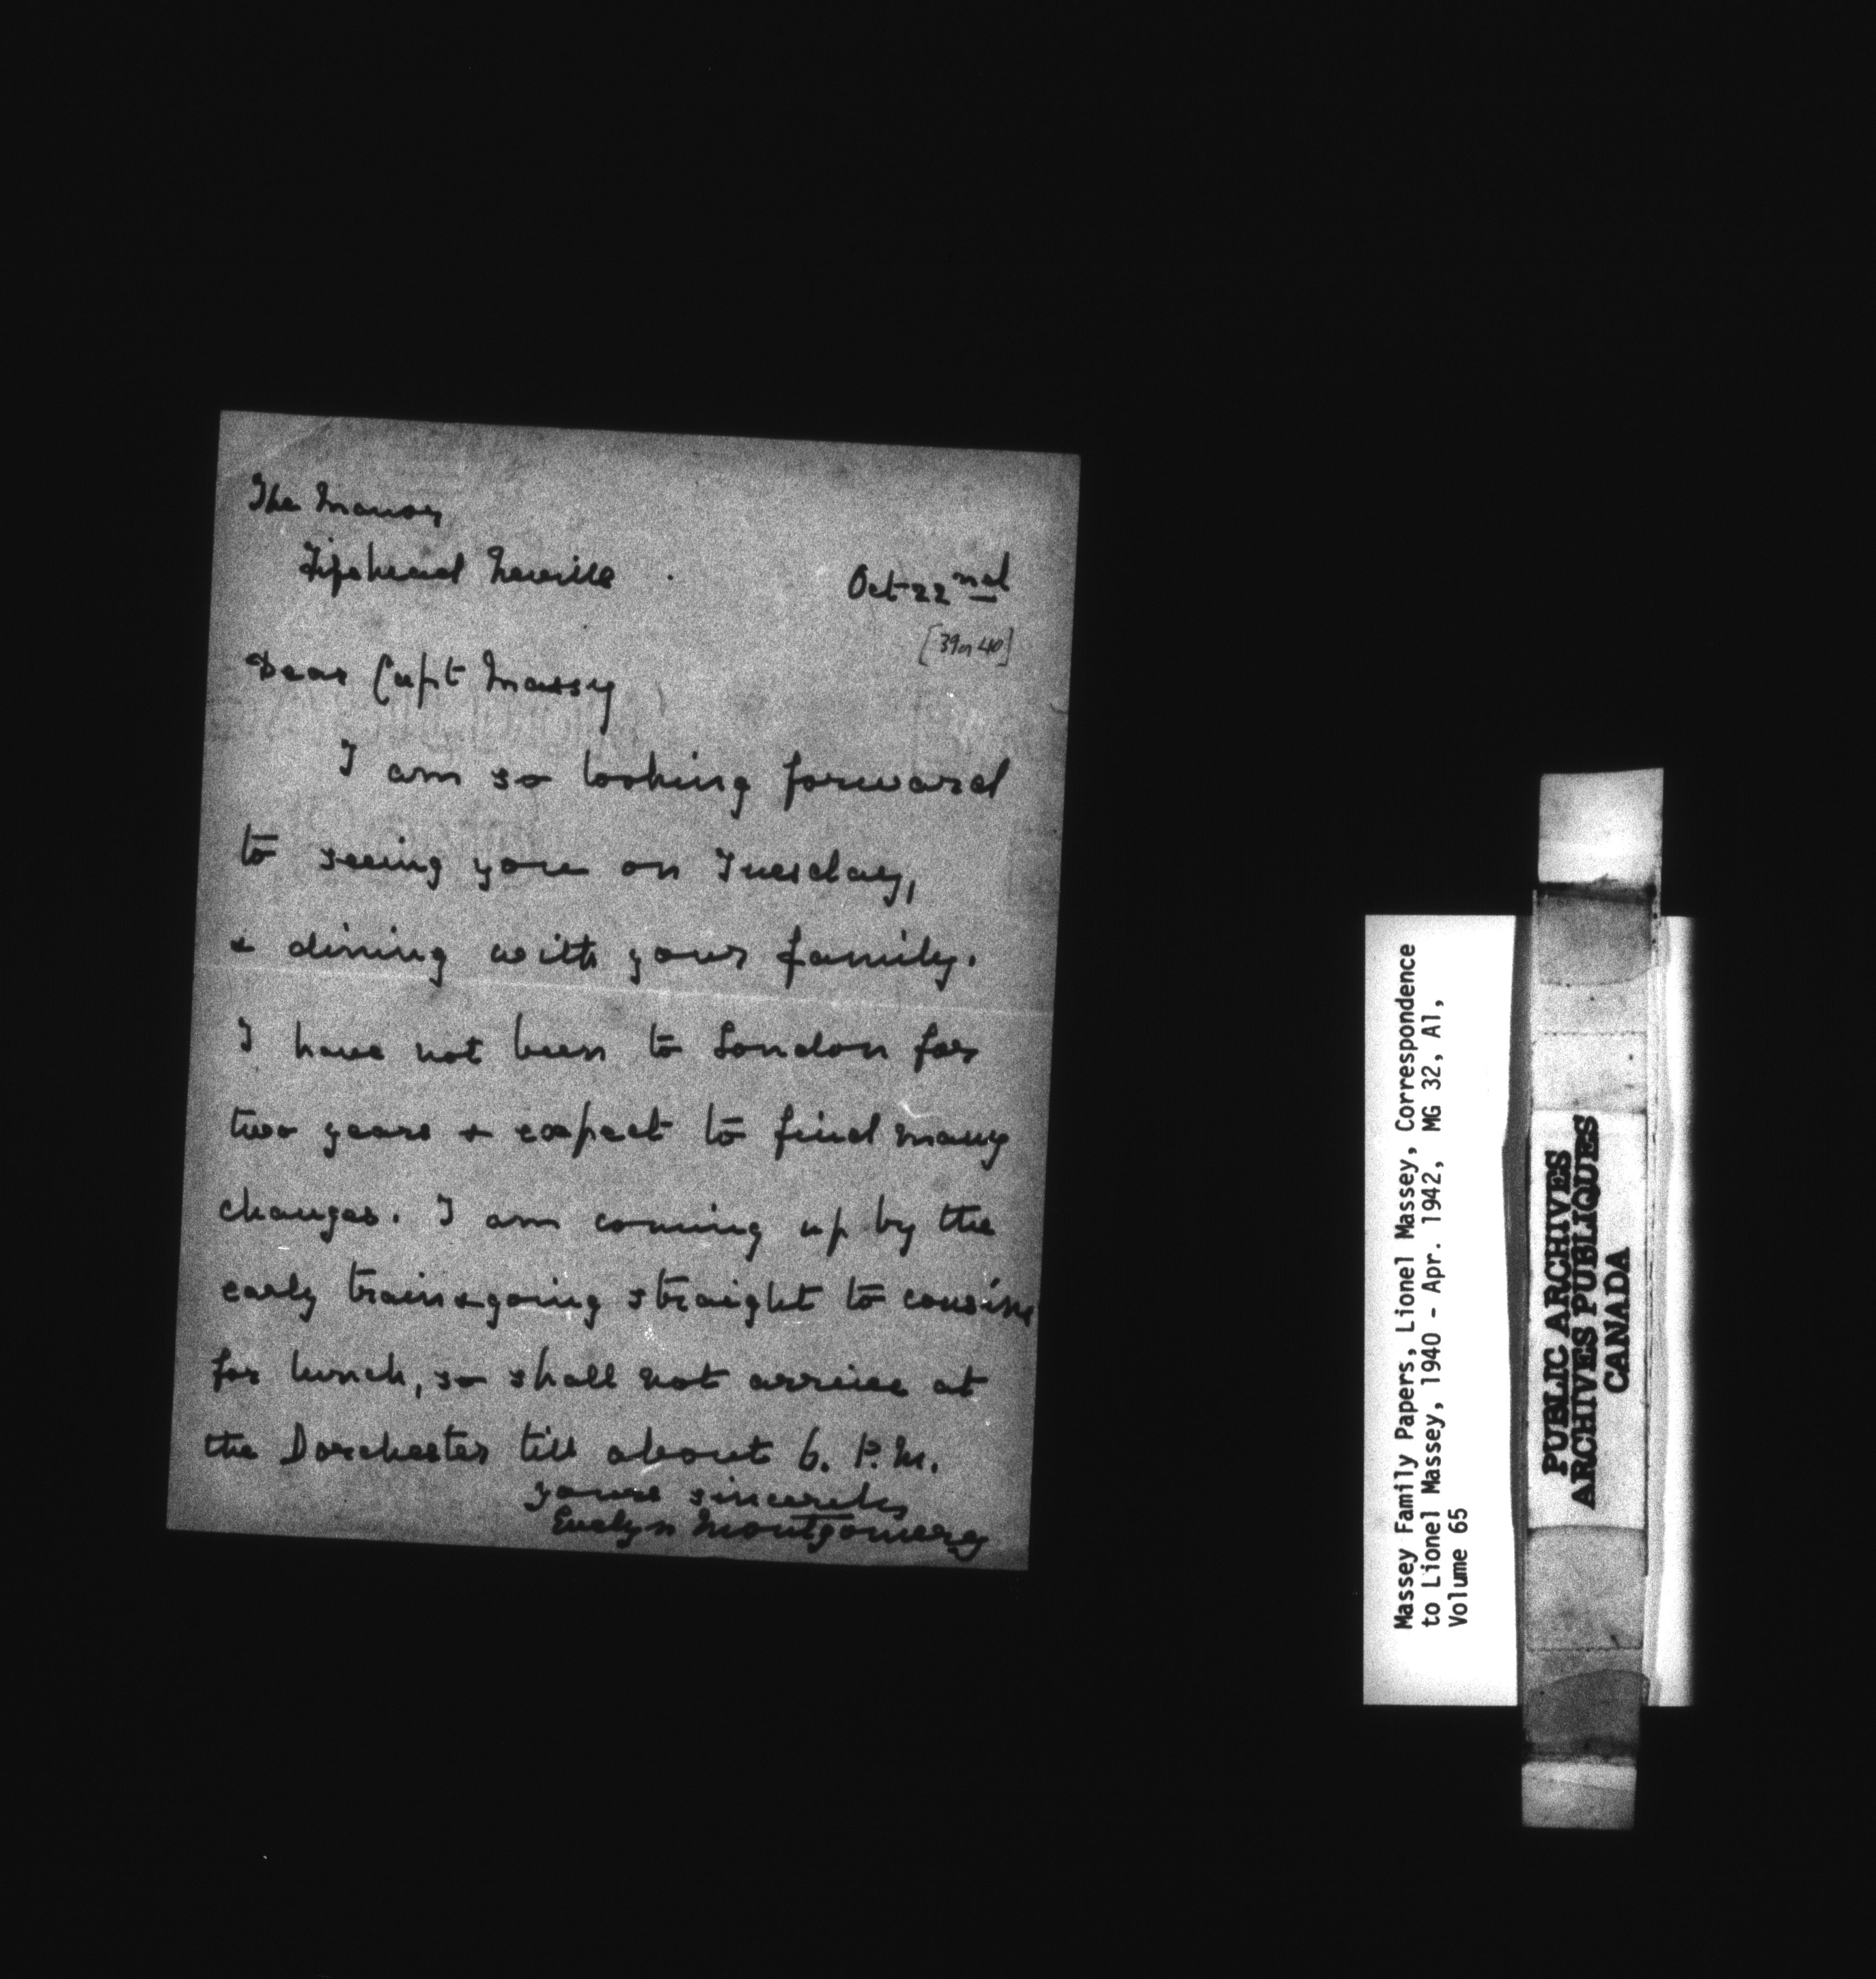 The Manor
Tipshead Neville .
Oct 22nd
[39 or 40]
Dear Capt Massey
I am so looking forward
to seeing you on Tuesday,
& dining with your family.
I have not been to London for
two years & expect to find many
changes. I am coming up by the
early train & going straight to cousins
for lunch, so shall not arrive at
the Dorchester till about 6. P.M.
Yours sincerely
Evelyn Montgomery
Massey Family Papers, Lionel Massey, Correspondence
to Lionel Massey, 1940 - Apr. 1942, MG 32, A1,
Volume 65
PUBLIC ARCHIVES
ARCHIVES PUBLIQUES
CANADA